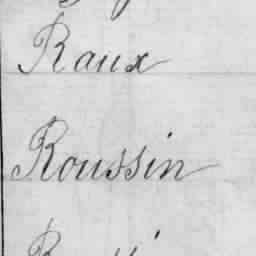 Raux
Roussin